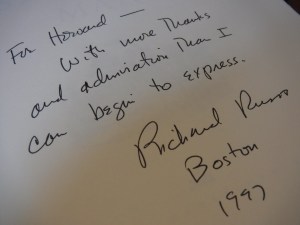 For Howard —
With more Thanks
and admiration Than I
can begin to express.
Richard Russo
Boston
1997